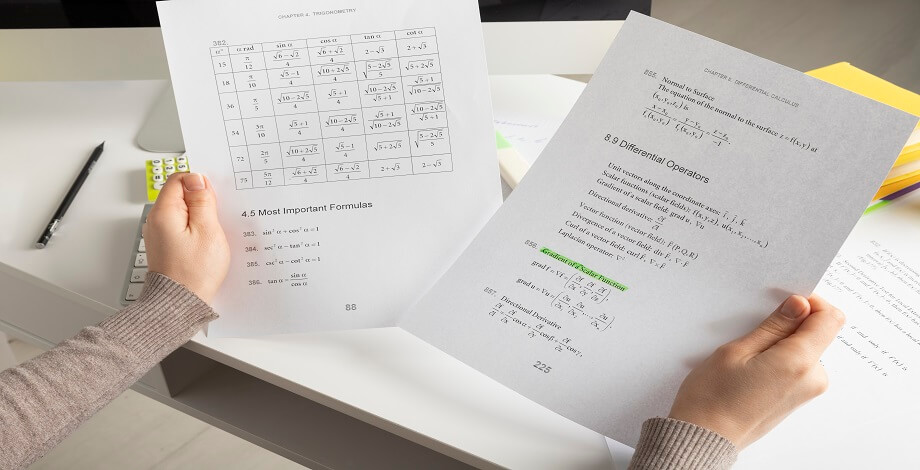 CHAPTER 4. TRIGONOMETRY
382.
α° α rad sin α cos α tan α cot α
15 π/12 (√6−√2)/4 (√6+√2)/4 2−√3 2+√3
18 π/10 (√5−1)/4 √(10+2√5)/4 √((5−2√5)/5) √(5+2√5)
36 π/5 √(10−2√5)/4 (√5+1)/4 √(10−2√5)/(√5+1) (√5+1)/√(10−2√5)
54 3π/10 (√5+1)/4 √(10−2√5)/4 (√5+1)/√(10−2√5) √(10−2√5)/(√5+1)
72 2π/5 √(10+2√5)/4 (√5−1)/4 √(5+2√5) √((5−2√5)/5)
75 5π/12 (√6+√2)/4 (√6−√2)/4 2+√3 2−√3
4.5 Most Important Formulas
383. sin² α + cos² α = 1
384. sec² α − tan² α = 1
385. csc² α − cot² α = 1
386. tan α = sin α/cos α
88
CHAPTER 8. DIFFERENTIAL CALCULUS
Normal to Surface
The equation of the normal to the surface z = f(x,y) at
(x₀,y₀,z₀) is
(x−x₀)/fₓ(x₀,y₀) = (y−y₀)/f_y(x₀,y₀) = (z−z₀)/−1
8.9 Differential Operators
Unit vectors along the coordinate axes: i, j, k
Scalar functions (scalar fields): f(x,y,z), u(x₁,x₂,...,xₙ)
Gradient of a scalar field: grad u, ∇u
Directional derivative: ∂f/∂l
Vector function (vector field): F(P,Q,R)
Divergence of a vector field: div F, ∇·F
Curl of a vector field: curl F, ∇×F
Laplacian operator: ∇²
856. Gradient of a Scalar Function
grad f = ∇f = (∂f/∂x, ∂f/∂y, ∂f/∂z),
grad u = ∇u = (∂u/∂x₁, ∂u/∂x₂, ..., ∂u/∂xₙ).
857. Directional Derivative
∂f/∂l = ∂f/∂x cos α + ∂f/∂y cos β + ∂f/∂z cos γ,
225